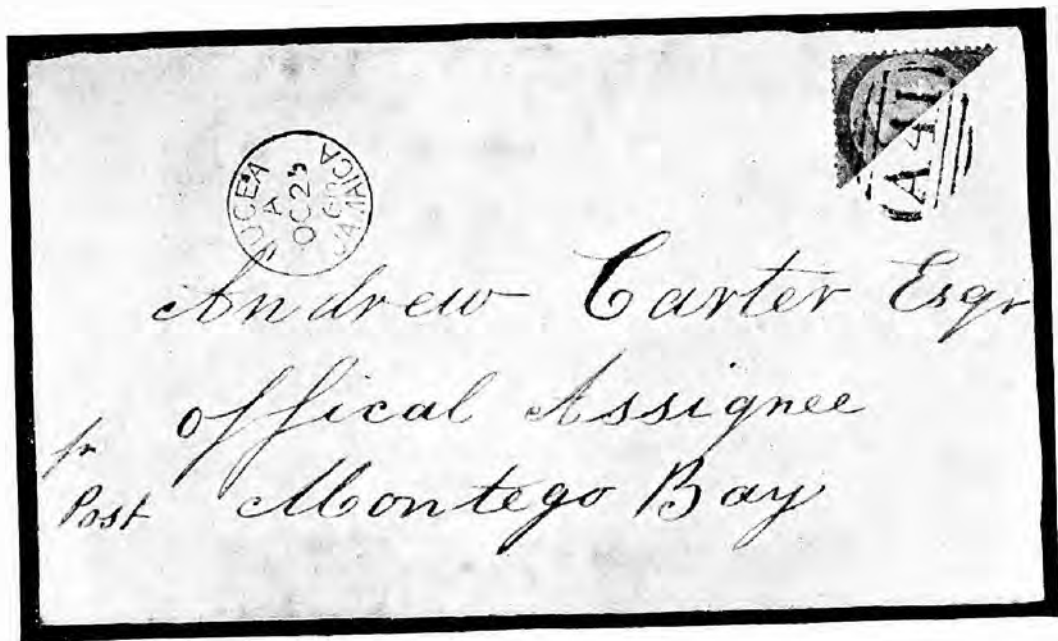 LUCEA
A
OC 25
JAMAICA
A41
Andrew Carter Esqr
offical Assignee
pr
Post Montego Bay